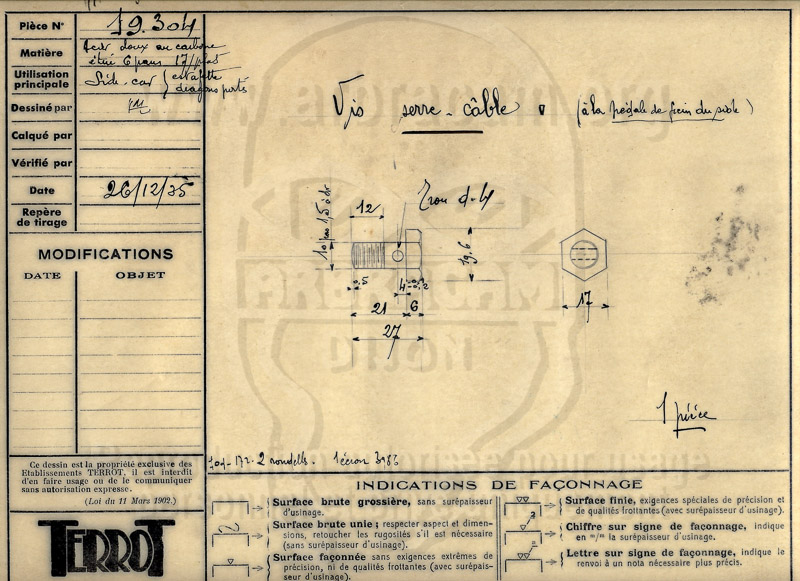 Pièce N° 19.304
Matière Acier doux au carbone
étiré 6 pans 17/plat
Utilisation
principale Side-car { estafette
dragons portés
Dessiné par
Calqué par
Vérifié par
Date 26/12/35
Repère
de tirage
MODIFICATIONS
DATE OBJET
Vis serre-câble (à la pédale de frein du side)
12
Trou d.4
10 pas 1,5 
19.6
0.5
4
21
6
27
17
1 pièce
2 rondelles. 1 écrou
Ce dessin est la propriété exclusive des
Etablissements TERROT, il est interdit
d'en faire usage ou de le communiquer
sans autorisation expresse.
(Loi du 11 Mars 1902.)
TERROT
INDICATIONS DE FAÇONNAGE
Surface brute grossière, sans surépaisseur
d'usinage.
Surface brute unie ; respecter aspect et dimen-
sions, retoucher les rugosités s'il est nécessaire
(sans surépaisseur d'usinage).
Surface façonnée sans exigences extrêmes de
précision, ni de qualités frottantes (avec surépais-
seur d'usinage).
Surface finie, exigences spéciales de précision et
de qualités frottantes (avec surépaisseur d'usinage).
Chiffre sur signe de façonnage, indique
en m/m la surépaisseur d'usinage.
Lettre sur signe de façonnage, indique le
renvoi à un nota nécessaire plus précis.